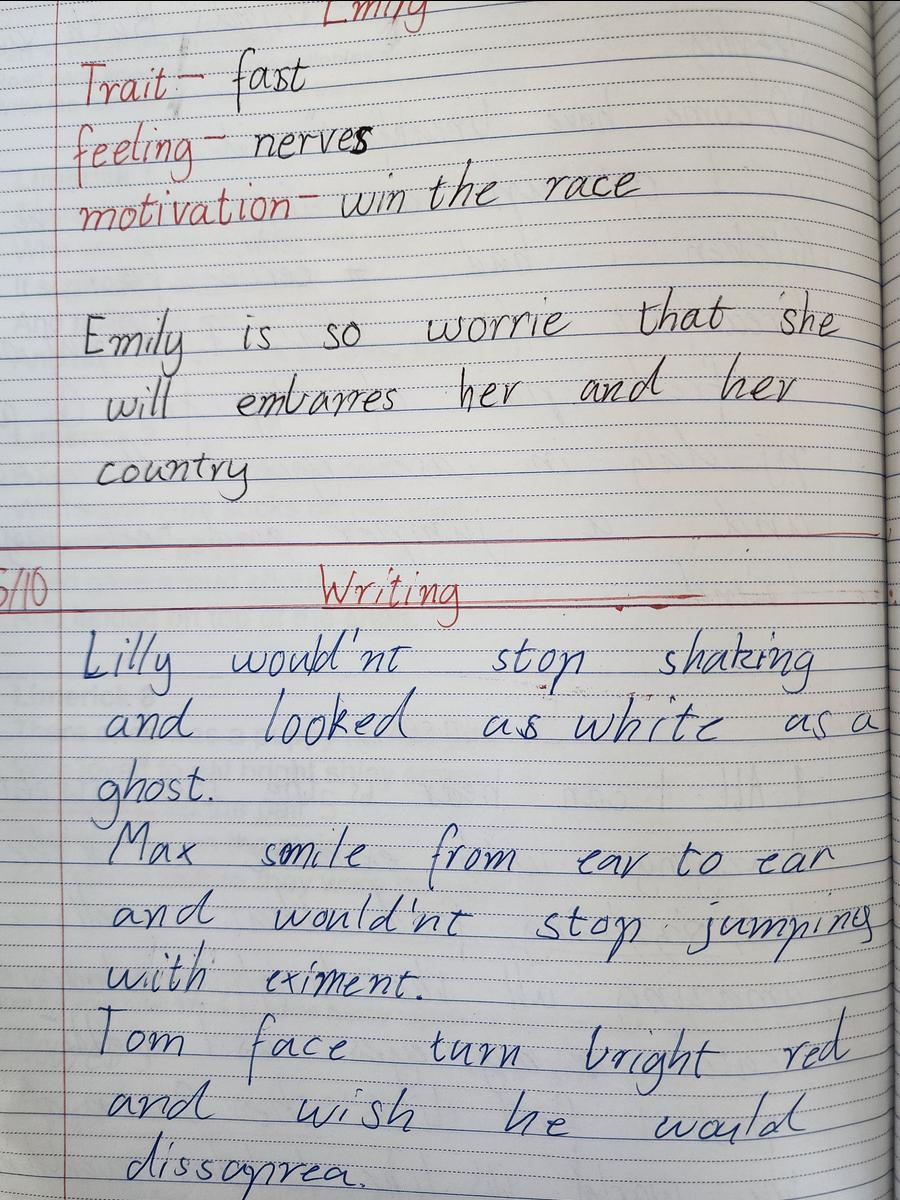 Emily
Trait - fast
feeling - nerves
motivation - win the race
Emily is so worrie that she
will embarres her and her
country
5/10
Writing
Lilly would'nt stop shaking
and looked as white as a
ghost.
Max smile from ear to ear
and would'nt stop jumping
with eximent.
Tom face turn bright red
and wish he would
dissaprea.